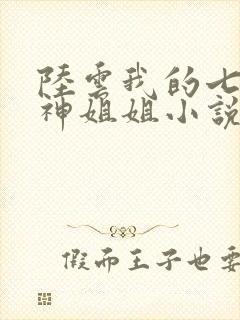 陸雲我的七
神姐姐小說
假而王子也要